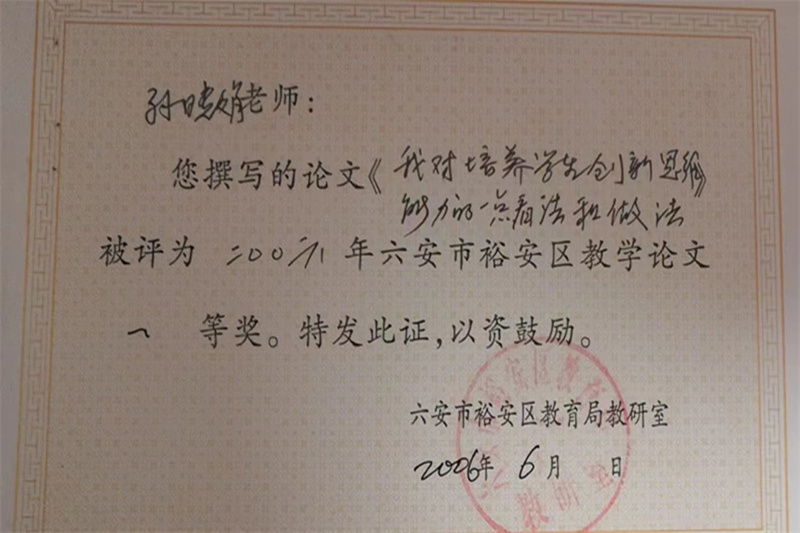 孙晓娟老师：
您撰写的论文《我对培养学生创新思维》
能力的一点看法和做法
被评为 二00六 年六安市裕安区教学论文
一 等奖。特发此证，以资鼓励。
六安市裕安区教育局教研室
2006年 6月 日
裕安区教育
教研室